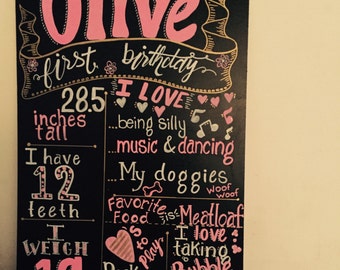 Olive
first birthday
28.5
inches
tall
I LOVE
...being silly
music & dancing
...My doggies
woof
woof
I have
12
teeth
Favorite
Food is:
Meatloaf
I WEIGH
to
play
I love
taking
Bubble